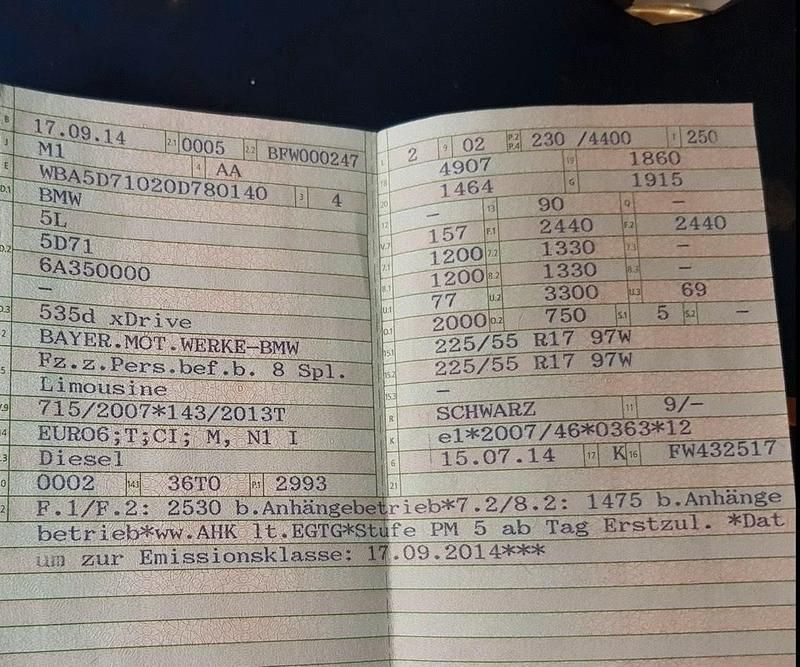 B 17.09.14 2.1 0005 2.2 BFW000247
J M1 4 AA
E WBA5D71020D780140 3 4
D.1 BMW
5L
D.2 5D71
6A350000
—
D.3 535d xDrive
2 BAYER.MOT.WERKE—BMW
5 Fz.z.Pers.bef.b. 8 Spl.
Limousine
V.9 715/2007*143/2013T
14 EURO6;T;CI; M, N1 I
P.3 Diesel
10 0002 14.1 36T0 P.1 2993
L 2 9 02 P.2 P.4 230 /4400 T 250
18 4907 19 1860
20 1464 G 1915
12 — 13 90 Q —
V.7 157 F.1 2440 F.2 2440
7.1 1200 7.2 1330 7.3 —
8.1 1200 8.2 1330 8.3 —
U.1 77 U.2 3300 U.3 69
O.1 2000 O.2 750 S.1 5 S.2 —
15.1 225/55 R17 97W
15.2 225/55 R17 97W
15.3 —
R SCHWARZ 11 9/—
K e1*2007/46*0363*12
6 15.07.14 17 K 16 FW432517
21
22 F.1/F.2: 2530 b.Anhängebetrieb*7.2/8.2: 1475 b.Anhänge
betrieb*ww.AHK lt.EGTG*Stufe PM 5 ab Tag Erstzul. *Dat
um zur Emissionsklasse: 17.09.2014***